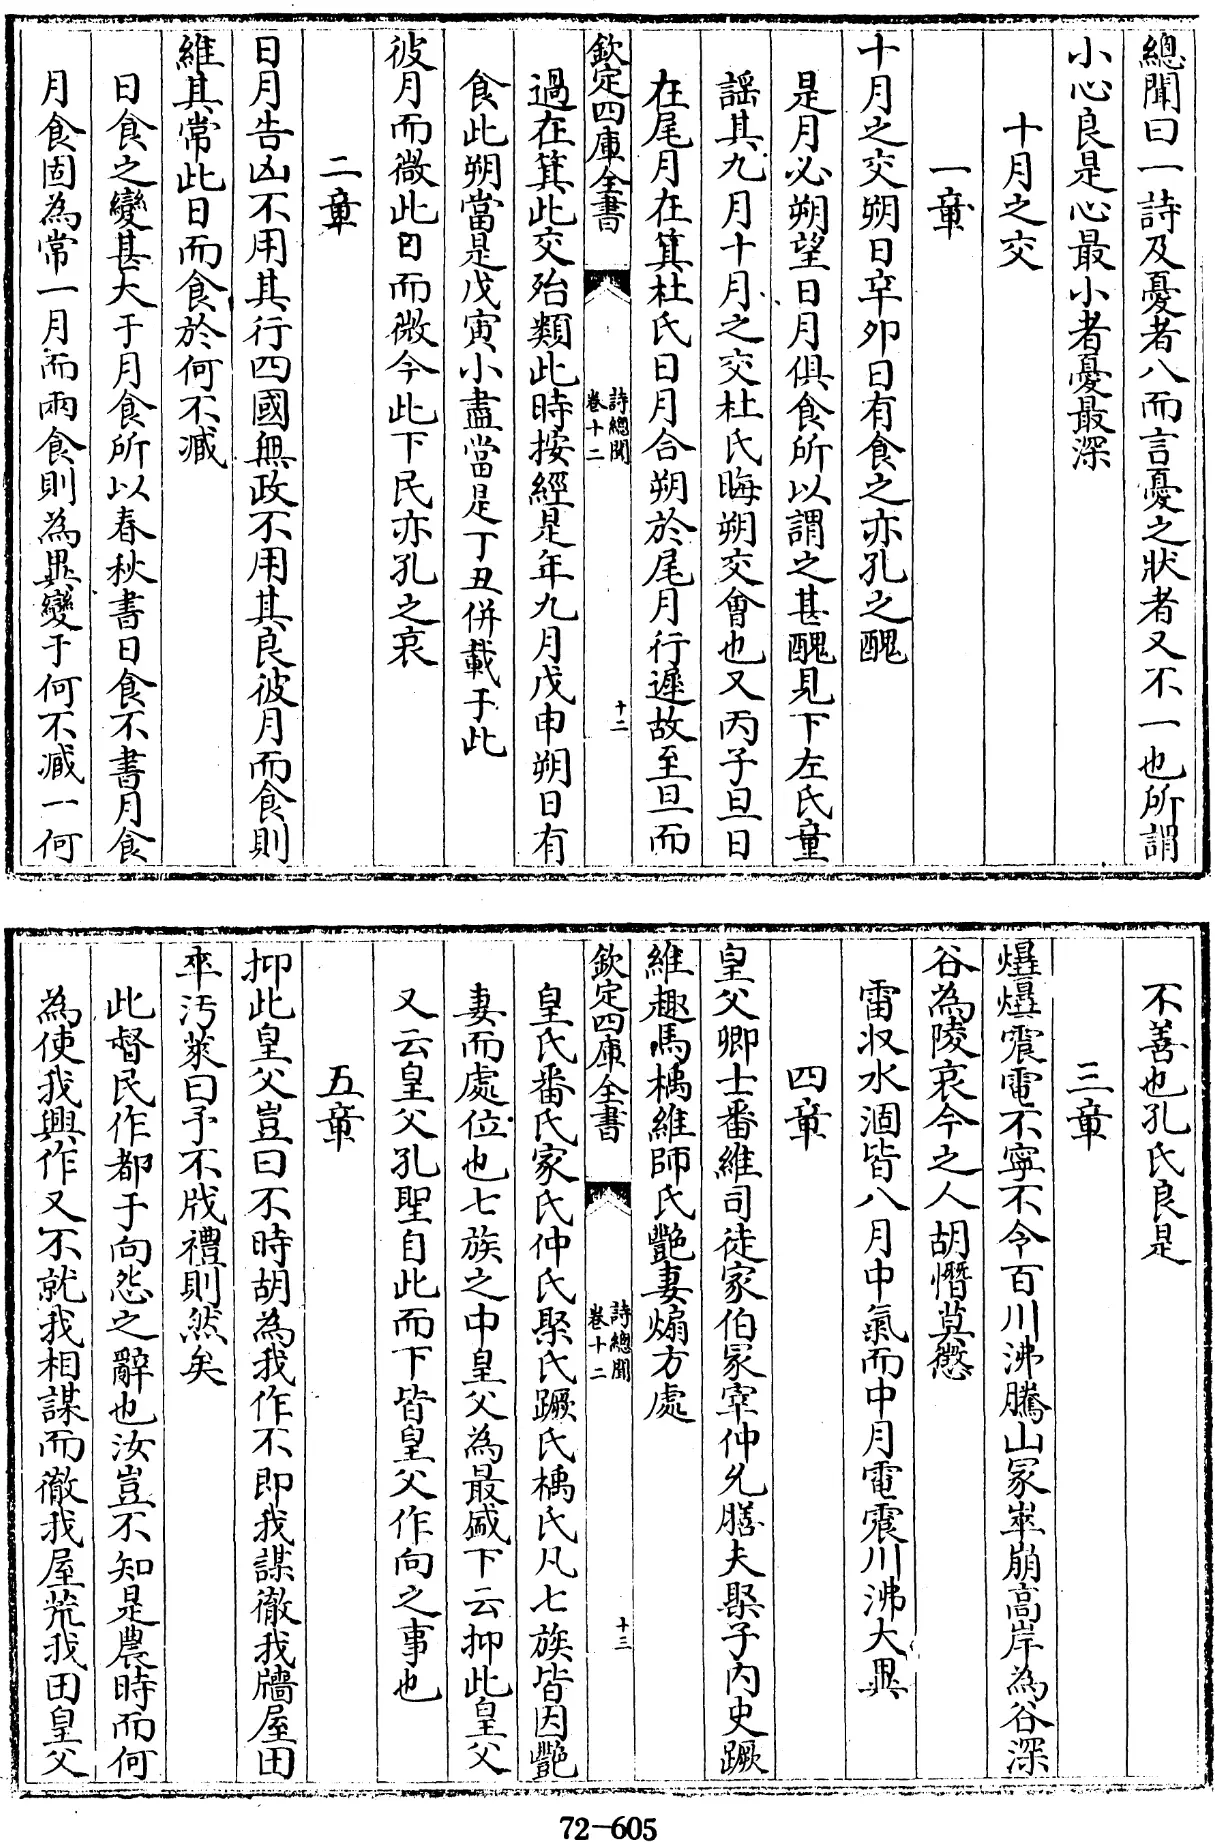 總聞曰一詩及憂者八而言憂之狀者又不一也所謂
小心良是心最小者憂最深
十月之交
一章
十月之交朔日辛卯日有食之亦孔之醜
是月必朔望日月俱食所以謂之甚醜見下左氏童
謡其九月十月之交杜氏晦朔交會也又丙子旦日
在尾月在箕杜氏日月合朔於尾月行遲故至旦而
欽定四庫全書
詩總聞
卷十二
十二
過在箕此交殆類此時按經是年九月戊申朔日有
食此朔當是戊寅小盡當是丁丑併載于此
彼月而微此日而微今此下民亦孔之哀
二章
日月告凶不用其行四國無政不用其良彼月而食則
維其常此日而食於何不臧
日食之變甚大于月食所以春秋書日食不書月食
月食固為常一月而兩食則為異變于何不臧一何
不善也孔氏良是
三章
爗爗震電不寧不令百川沸騰山冢崒崩高岸為谷深
谷為陵哀今之人胡憯莫懲
雷収水涸皆八月中氣而中月電震川沸大異
四章
皇父卿士番維司徒家伯冢宰仲允膳夫聚子内史蹶
維趣馬楀維師氏豔妻煽方處
欽定四庫全書
詩總聞
卷十二
十三
皇氏番氏家氏仲氏聚氏蹶氏楀氏凡七族皆因豔
妻而處位也七族之中皇父為最盛下云抑此皇父
又云皇父孔聖自此而下皆皇父作向之事也
五章
抑此皇父豈曰不時胡為我作不即我謀徹我牆屋田
卒汚萊曰予不戕禮則然矣
此督民作都于向怨之辭也汝豈不知是農時而何
為使我興作又不就我相謀而徹我屋荒我田皇父
72-605